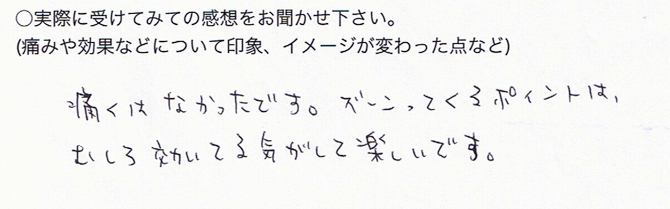 ○実際に受けてみての感想をお聞かせ下さい。
(痛みや効果などについて印象、イメージが変わった点など)
痛くは なかったです。ズーンってくるポイントは、
むしろ 効いてる気がして楽しいです。